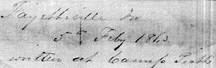 Fayetteville Tn
5th Feby 1863
written at Camp